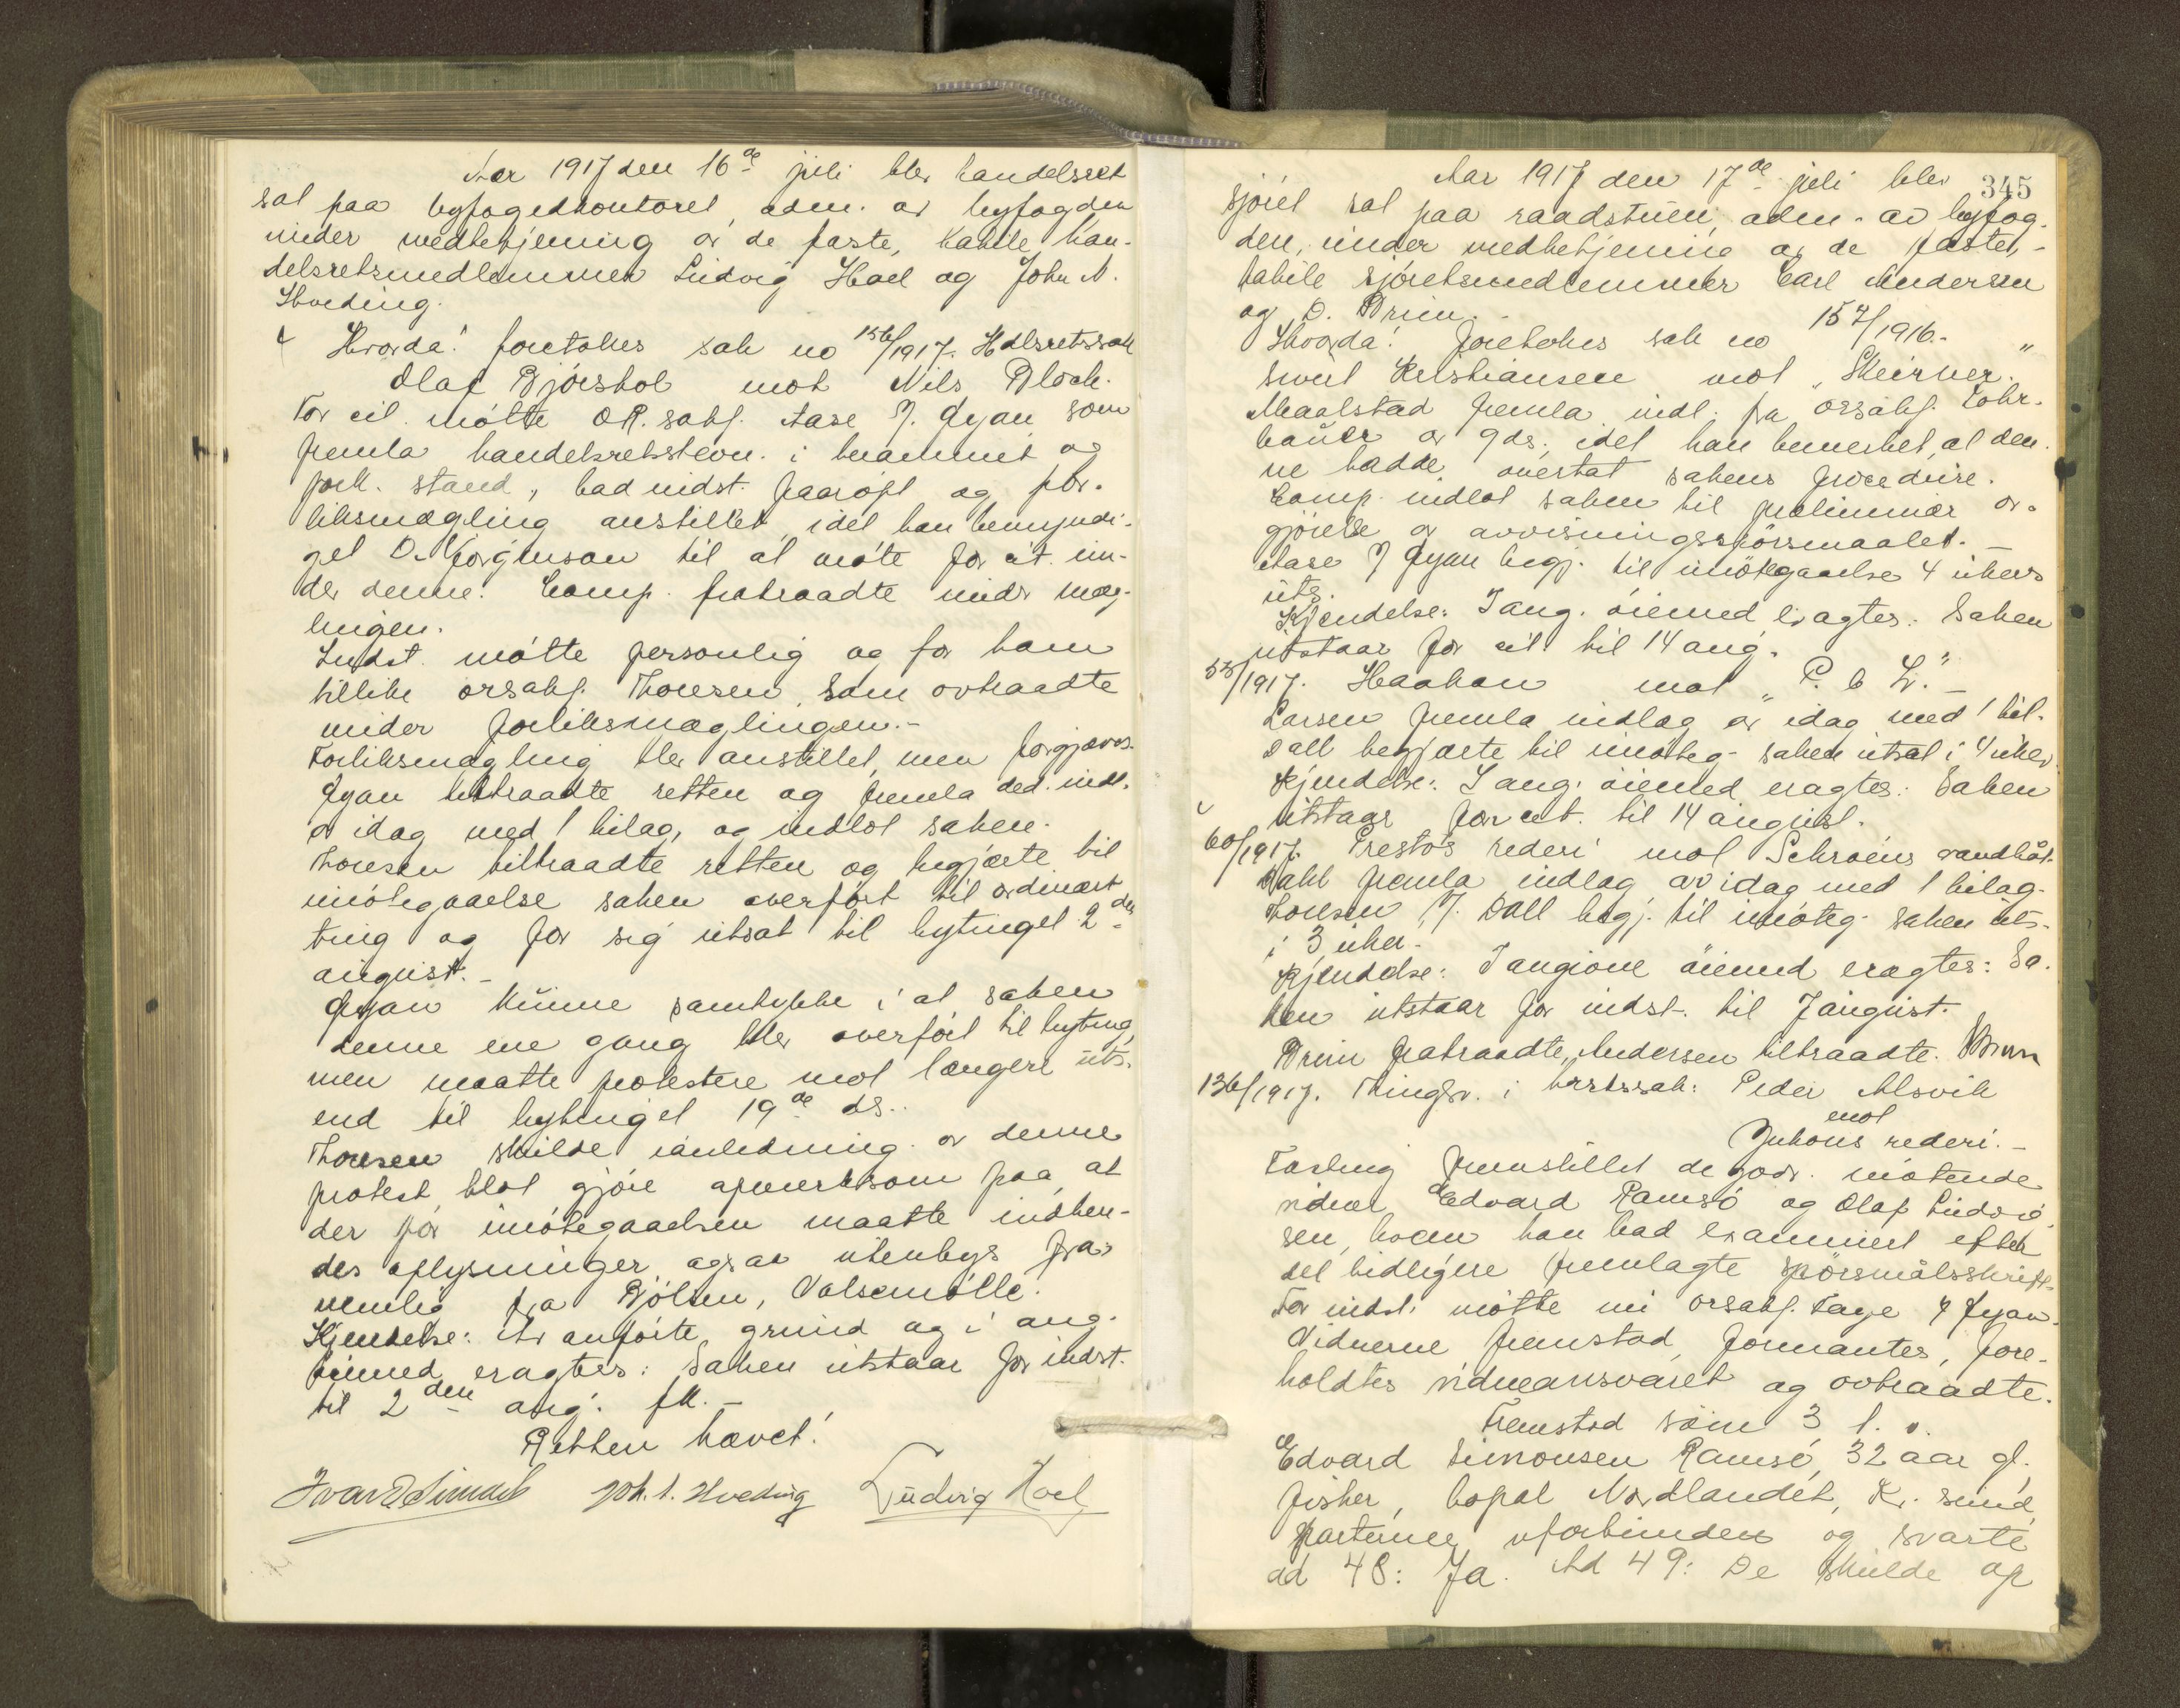 Aar 1917 den 16de juli blev handelsret
sat paa byfogedkontoret, adm. av byfogden
under medbetjening av de faste, habile han-
delsretsmedlemmer Ludvig Hoel og John N.
Hveding.
Hvorda! foretokes sak no 156/1917. Hdlsretssak
Olaf Bjørstol mot Nils Bloch.
For cit. møtte OR. sakf. Aase f. Gyan som
fremla handelsretsstevn. i berammet og
fork. stand, bad indst. paaropt og for-
liksmægling anstillet, idet han bemyndi-
get O. Jørginson til at møte for cit. un-
der denne. Comp. fratraadte under mæg-
lingen.
Indst. møtte personlig og for ham
tillike orsakf. Thoresen, som avtraadte
under forliksmæglingen.-
Forliksmægling blev anstillet, men forgjæves.
Gyan tiltraadte retten og fremla ded. indl.
av idag med 1 bilag, og indlot saken.
Thoresen tiltraadte retten og begjærte til
imøtegaaelse saken overført til ordinært
ting og for sig utsat til bytinget 2den
august.-
Gyan kunne samtykke i at saken
denne ene gang blev overført til byting,
men maatte protestere mot længere uts.
end til bytinget 19de ds..
Thoresen skulde i anledning av denne
protest blot gjøre opmerksom paa, at
der for imøtegaaelsen maatte indhen-
des oplysninger ogsaa utenbys fra
nemlig fra Bjølsen, Valsemølle.
Kjendelse: Av anførte grund og i ang.
øiemed eragtes: Saken utstaar for indst.
til 2den aug. fk.-
Retten hævet!
Ivar Simdal Joh. N. Hveding Ludvig Hoel
345
Aar 1917 den 17de juli blev
sjøret sat paa raadstuen, adm. av byfog-
den, under medbetjening av de faste,-
habile sjøretsmedlemmer Carl Andersen
og D. Brun.
Hvorda! foretokes sak no 157/1916.
Sivert Kristiansen mot "Skirner."
Maalstad fremla indl. fra orsakf. Lohr-
bauer av gds., idet han bemerket, at den-
ne hadde overtat sakens procedure.
Comp. indlot saken til præliminær av-
gjørelse av avvisningsspørsmaalet.-
Aase f Gyan begj. til imøtegaaelse 4 ukers
uts.
Kjendelse: I ang. øiemed eragtes: Saken
utstaar for cit. til 14 aug.
53/1917. Haakon mot "P. C L."-
Larsen fremla indlæg av idag med 1 bil.
Dall begjærte til imøteg. saken utsat i 4 uker.
Kjendelse: I ang. øiemed eragtes: Saken
utstaar for cit. til 14 august.
60/1917. Prestøs rederi mot Schrøens vandbåt.
Dahl fremla indlæg av idag med 1 bilag.
Thoresen f. Dall begj. til imøteg. saken uts.
i 3 uker.
Kjendelse: I angivne øiemed eragtes: Sa-
ken utstaar for indst. til 7 august.
Brun fratraadte, Andersen tiltraadte. Brun
136/1917. Tingsv. i berkssak: Peder Alsvik
mot
Juhons rederi.-
Fasting fremstillet de godv. møtende
vidner Edvard Ramsø og Olaf Ludvig-
sen, hvem han bad examinert efter
det tidligere fremlagte spørsmålsskrift.
For indst. møtte nu orsakf. Tage f Gyan.
Vidnerne fremstod, formantes, fore-
holdtes vidneansvaret og avtraadte.
Fremstod som 3. l. v.
Edvard Simonsen Ramsø, 32 aar gl.,
fisker, bopæl Nordlandet, Kr. sund,
parterne uforbunden og svarte
ad 48: Ja. Ad 49: De skulde op